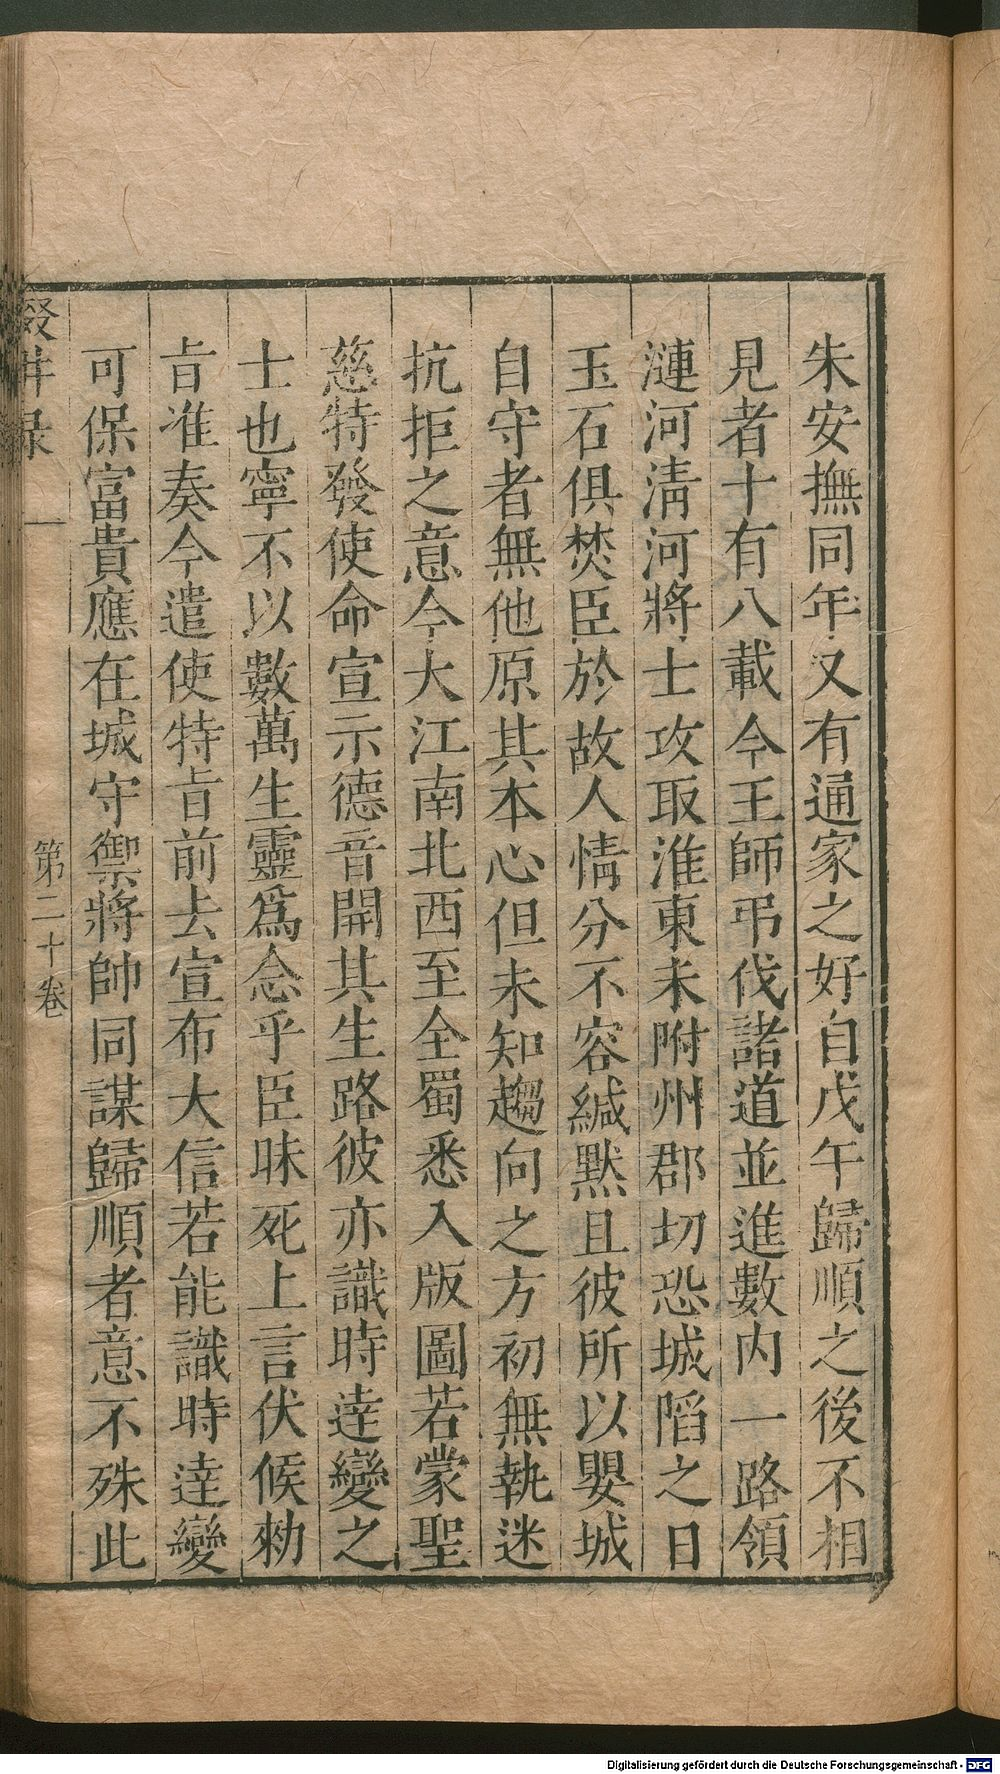 朱安撫同年又有通家之好自戊午歸順之後不相
見者十有八載今王師弔伐諸道並進數內一路領
漣河淸河將士攻取淮東未附州郡切恐城陷之日
玉石俱焚臣於故人情分不容緘默且彼所以嬰城
自守者無他原其本心但未知趨向之方初無執迷
抗拒之意今大江南北西至全蜀悉入版圖若蒙聖
慈特發使命宣示德音開其生路彼亦識時達變之
士也寧不以數萬生靈爲念乎臣昧死上言伏候勑
旨准奏今遣使特旨前去宣布大信若能識時達變
可保富貴應在城守禦將帥同謀歸順者意不殊此
輟畊录 一 第二十卷
Digitalisierung gefördert durch die Deutsche Forschungsgemeinschaft - DFG